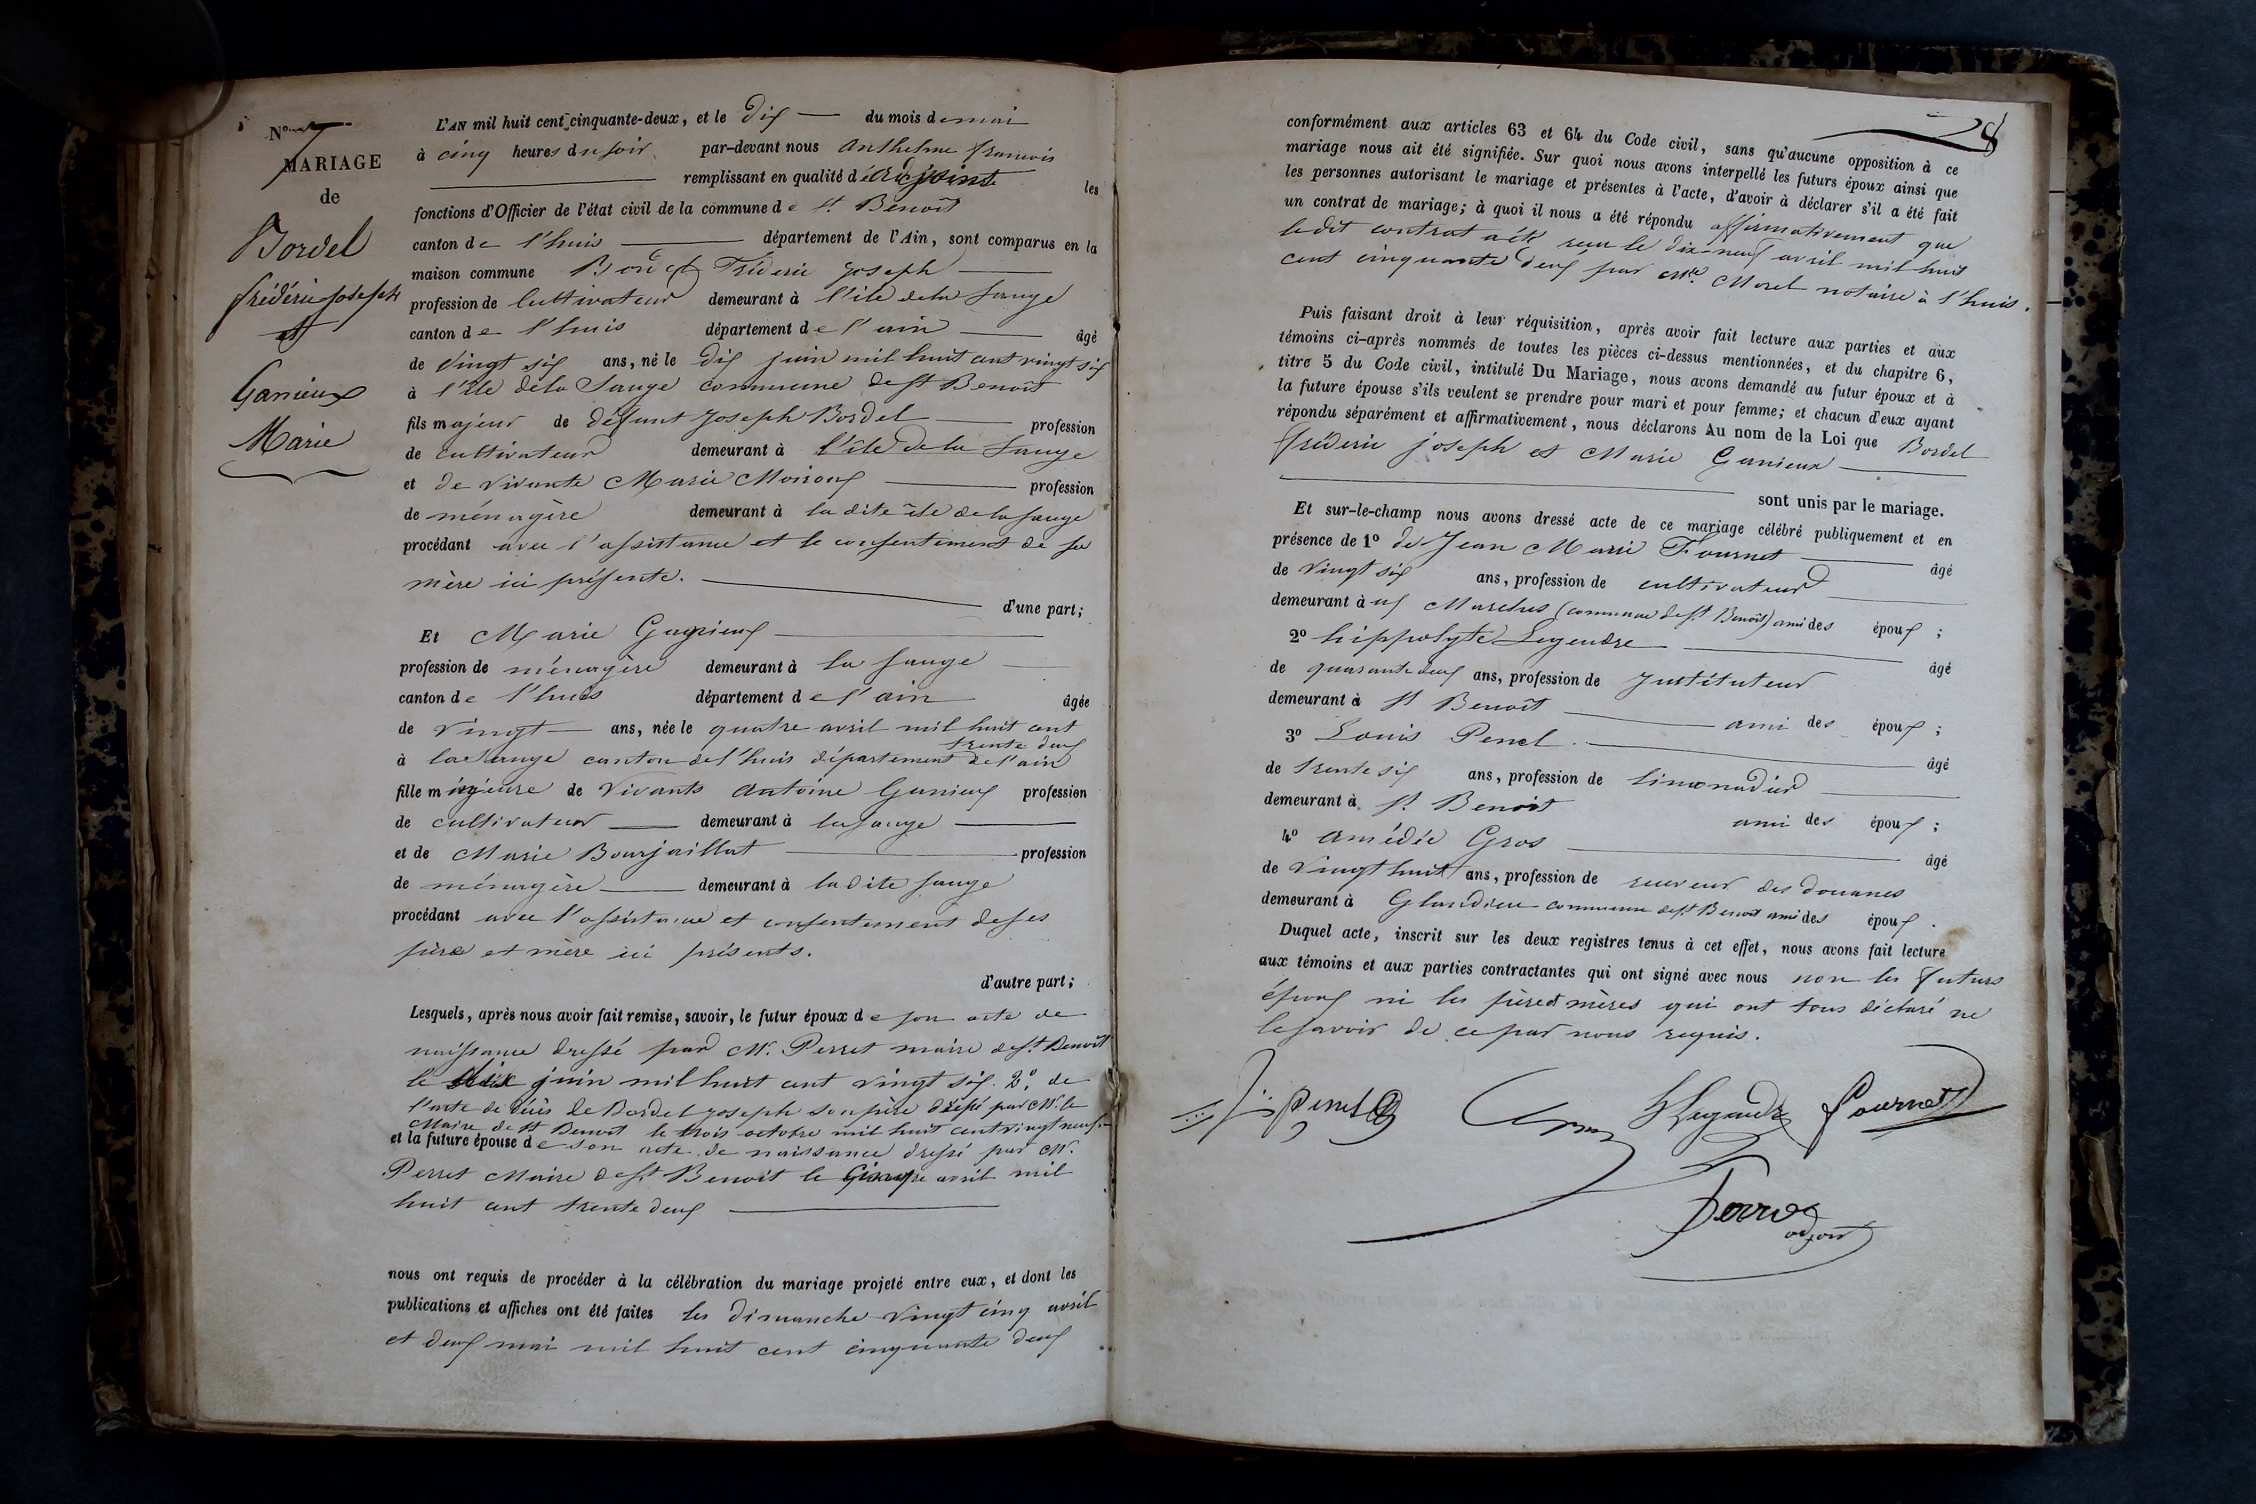 N° 7
MARIAGE
de
Bordel
frédéric joseph
et
Ganieux
Marie
L'AN mil huit cent cinquante-deux, et le dix du mois de mai
à cinq heures du soir par-devant nous Anthelme françois
remplissant en qualité d'adjoint les
fonctions d'Officier de l'état civil de la commune de St. Benoît
canton de l'huis département de l'Ain, sont comparus en la
maison commune Bordel Fréderic joseph
profession de Cultivateur demeurant à l'île de la Sauge
canton de l'huis département de l'ain âgé
de vingt six ans, né le dix juin mil huit cent vingt six
à l'île de la Sauge commune de St Benoît
fils majeur de défunt joseph Bordel profession
de cultivateur demeurant à l'île de la Sauge
et de vivante Marie Moiroux profession
de ménagère demeurant à la dite île de la sauge
procédant avec l'assistance et le consentement de sa
mère ici présente.
d'une part;
Et Marie Ganieux
profession de ménagère demeurant à la sauge
canton de l'huis département de l'ain âgée
de vingt ans, née le quatre avril mil huit cent
trente deux
à la Sauge canton de l'huis département de l'ain
fille mineure de vivants Antoine Ganieux profession
de cultivateur demeurant à la sauge
et de Marie Bourjaillat profession
de ménagère demeurant à la dite sauge
procédant avec l'assistance et consentement de ses
père et mère ici présents.
d'autre part;
Lesquels, après nous avoir fait remise, savoir, le futur époux de son acte de
naissance dressé par Mr. Perret maire de St. Benoît
le dix juin mil huit cent vingt six. 2° de
l'acte de décès de Bordel joseph son père dressé par Mr. le
Maire de St Benoît le trois octobre mil huit cent vingt neuf.
et la future épouse de son acte de naissance dressé par Mr.
Perret Maire de St. Benoît le avril mil
huit cent trente deux
nous ont requis de procéder à la célébration du mariage projeté entre eux, et dont les
publications et affiches ont été faites les dimanche vingt cinq avril
et deux mai mil huit cent cinquante deux
28
conformément aux articles 63 et 64 du Code civil, sans qu'aucune opposition à ce
mariage nous ait été signifiée. Sur quoi nous avons interpellé les futurs époux ainsi que
les personnes autorisant le mariage et présentes à l'acte, d'avoir à déclarer s'il a été fait
un contrat de mariage; à quoi il nous a été répondu affirmativement que
le dit contrat a été reçu le dix-neuf avril mil huit
cent cinquante deux par Me. Morel notaire à l'huis.
Puis faisant droit à leur réquisition, après avoir fait lecture aux parties et aux
témoins ci-après nommés de toutes les pièces ci-dessus mentionnées, et du chapitre 6,
titre 5 du Code civil, intitulé Du Mariage, nous avons demandé au futur époux et à
la future épouse s'ils veulent se prendre pour mari et pour femme; et chacun d'eux ayant
répondu séparément et affirmativement, nous déclarons Au nom de la Loi que Bordel
fréderic joseph et Marie Ganieux
sont unis par le mariage.
Et sur-le-champ nous avons dressé acte de ce mariage célébré publiquement et en
présence de 1° de Jean Marie Fournet âgé
de vingt six ans, profession de cultivateur
demeurant à (commune de St. Benoît) ami des époux ;
2° hippolyte Legendre âgé
de quarante deux ans, profession de Instituteur
demeurant à St Benoît ami des époux ;
3° Louis Penel. âgé
de trente six ans, profession de limonadier
demeurant à St. Benoît ami des époux ;
4° Amédée Gros âgé
de vingt huit ans, profession de receveur des douanes
demeurant à Glandieu commune de St Benoît ami des époux.
Duquel acte, inscrit sur les deux registres tenus à cet effet, nous avons fait lecture
aux témoins et aux parties contractantes qui ont signé avec nous non les futurs
époux ni les père et mères qui ont tous déclaré ne
le savoir de ce par nous requis.
penel HLegendre fournet
adjoint